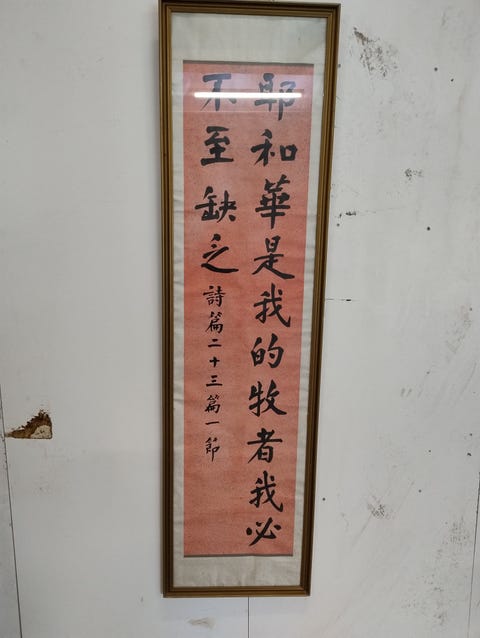 耶和華是我的牧者我必
不至缺乏詩篇二十三篇一節